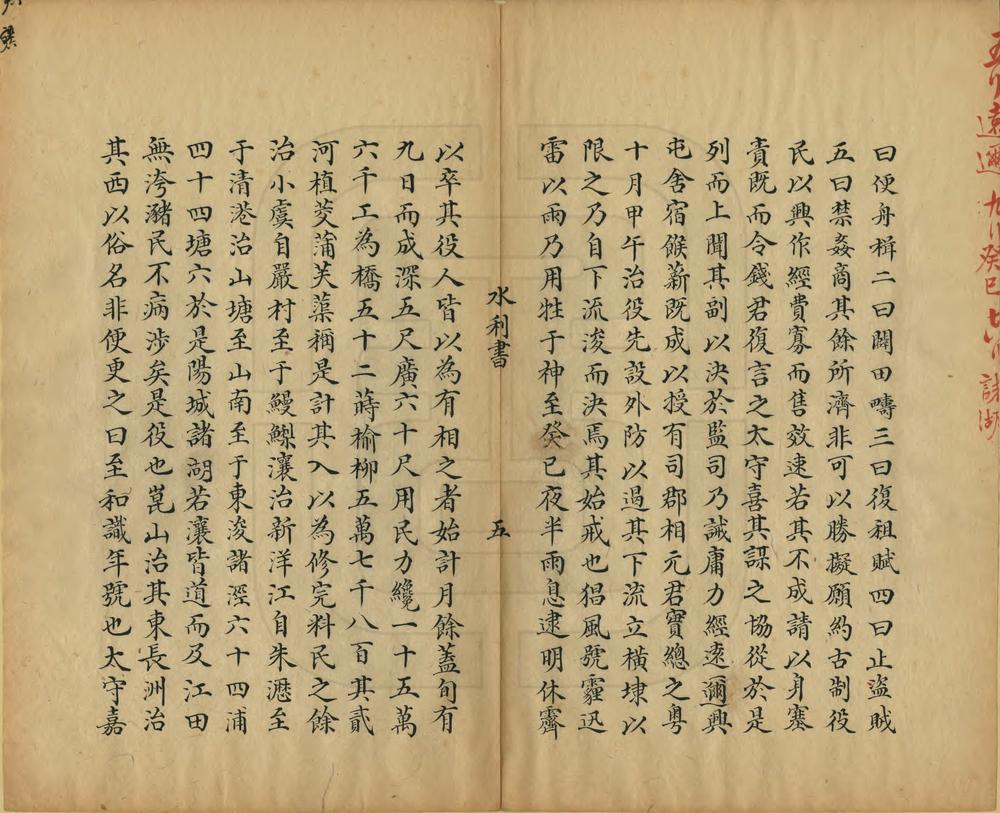 曰便舟楫二曰闢田疇三曰復祖賦四曰止盜賊
五曰禁姦商其餘所濟非可以勝擬願約古制役
民以興作經費寡而售效速若其不成請以身塞
責既而令錢君復言之太守喜其謀之協從於是
列而上聞其副以決於監司乃誡庸力經遠邇興
屯舍宿餱薪既成以授有司郡相元君實總之粤
十月甲午治役先設外防以遏其下流立橫埭以
限之乃自下流浚而決焉其始戒也猖風號霾迅
雷以雨乃用牲于神至癸巳夜半雨息逮明休霽
水利書
五
以卒其役人皆以為有相之者始計月餘蓋旬有
九日而成深五尺廣六十尺用民力纔一十五萬
六千工為橋五十二蒔榆柳五萬七千八百其貳
河植茭蒲芙蕖稱是計其入以為修完料民之餘
治小虞自嚴村至于鰻鱺瀼治新洋江自朱瀝至
于清港治山塘至山南至于東浚諸涇六十四浦
四十四塘六於是陽城諸湖若瀼皆道而及江田
無洿瀦民不病涉矣是役也崑山治其東長洲治
其西以俗名非便更之曰至和識年號也太守嘉
五八遠邇
九八癸巳